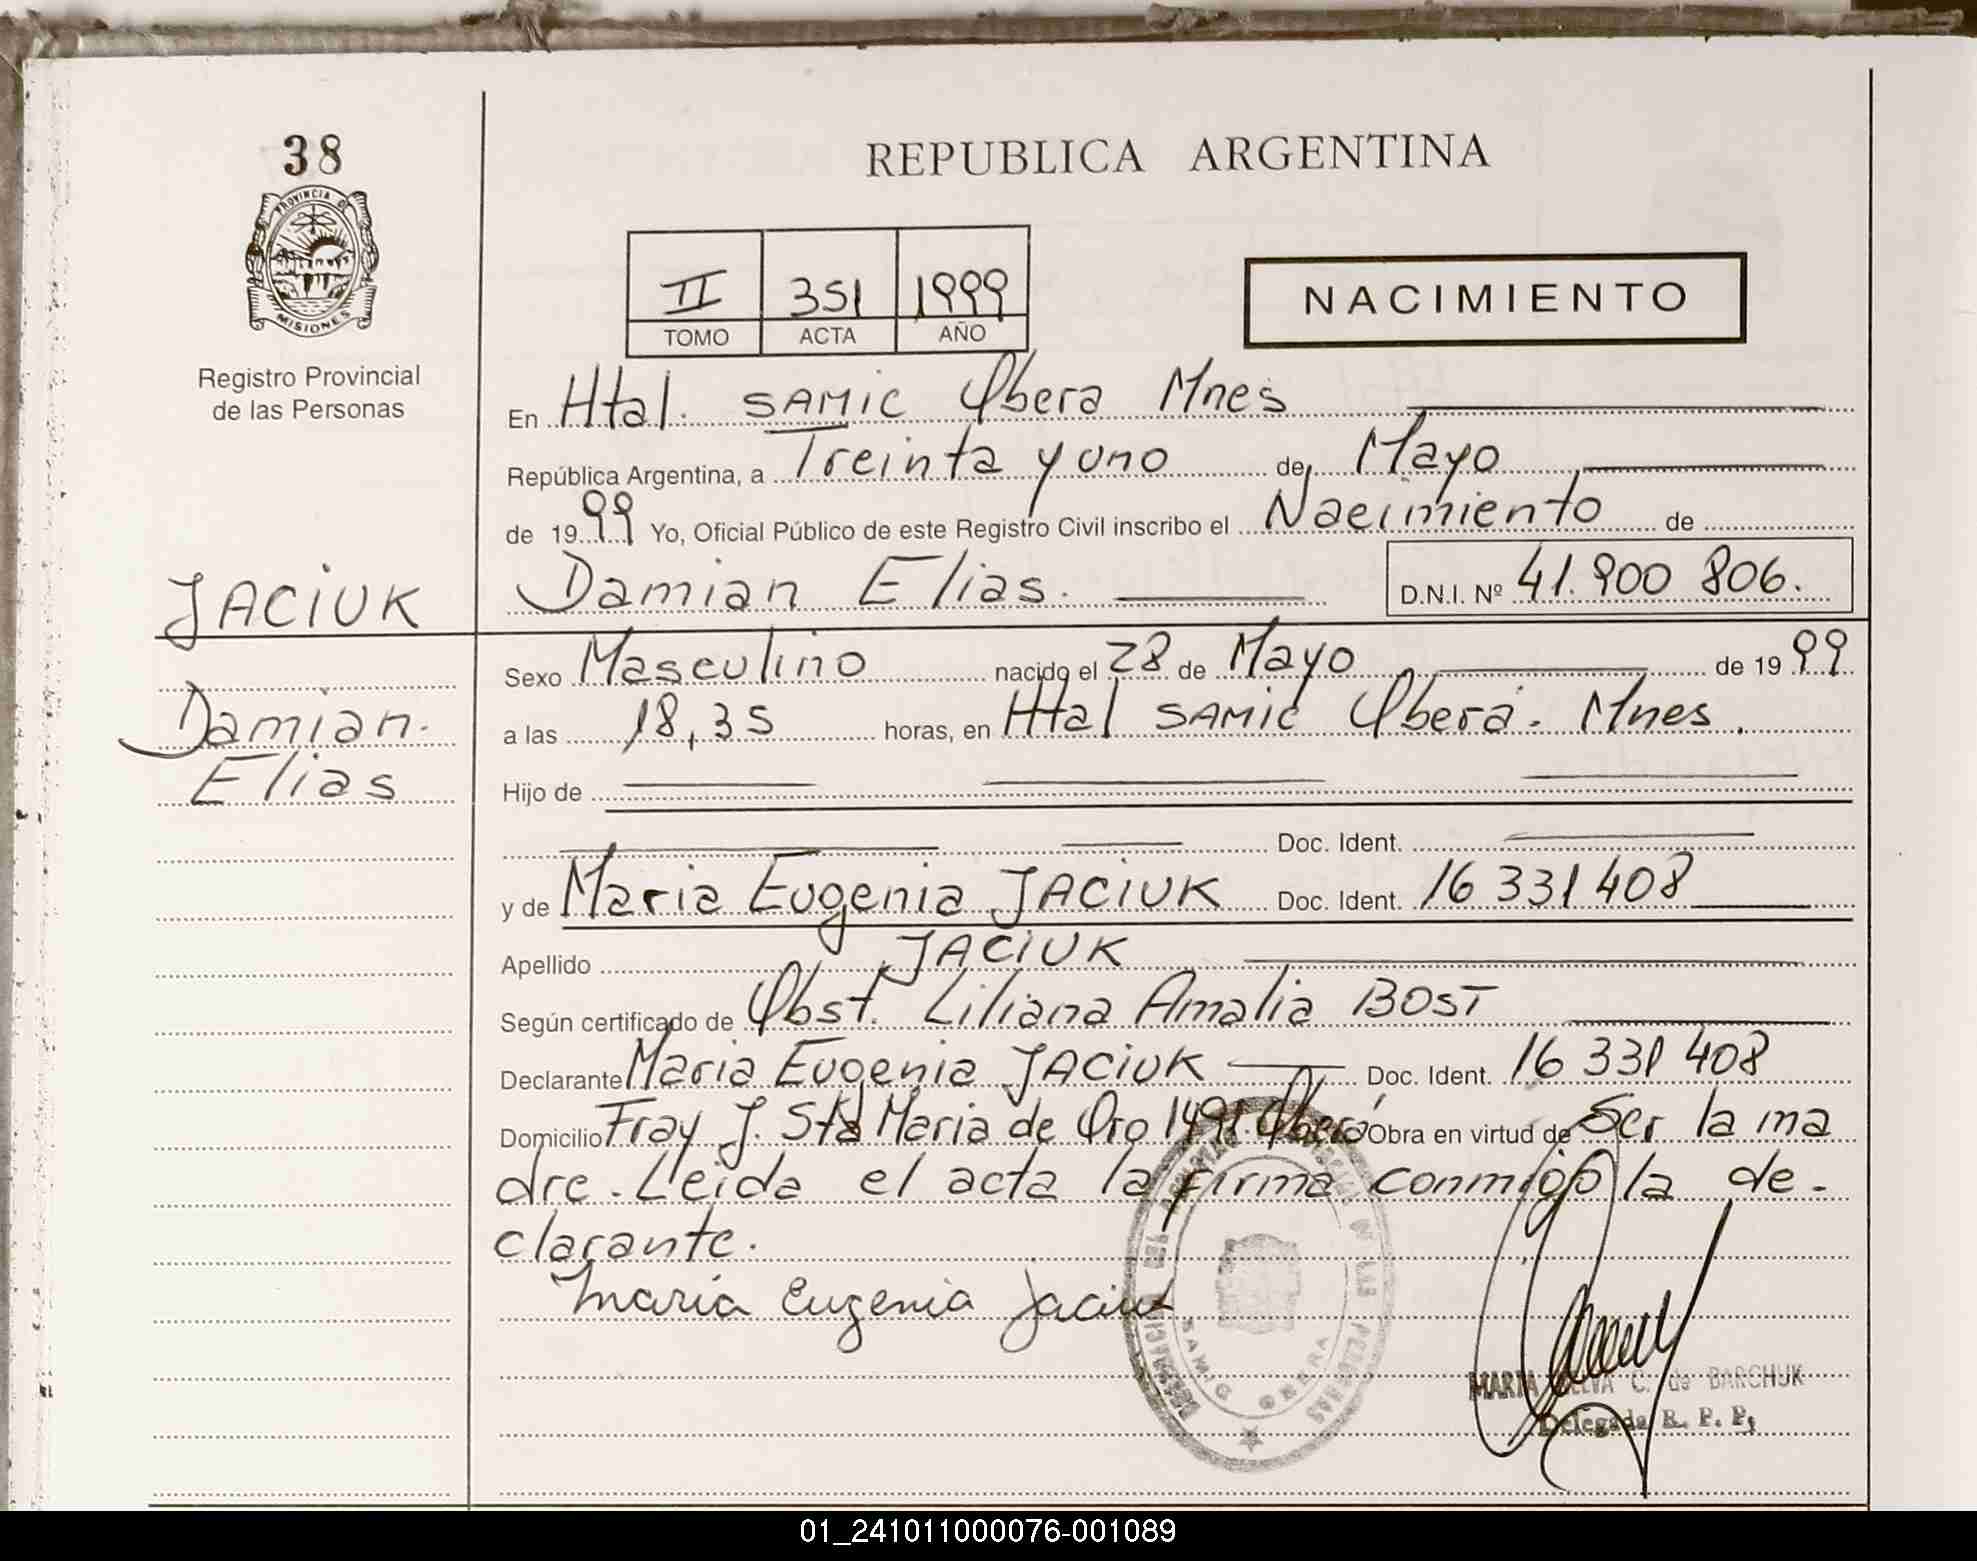 38
PROVINCIA DE
MISIONES
Registro Provincial
de las Personas
REPUBLICA ARGENTINA
II 351 1999
TOMO ACTA AÑO
NACIMIENTO
En Htal. SAMIC Obera Mnes
República Argentina, a Treinta y uno de Mayo
de 1999 Yo, Oficial Público de este Registro Civil inscribo el Nacimiento de
JACIUK Damian Elias. D.N.I. Nº 41.900 806.
Damian.
Elias
Sexo Masculino nacido el 28 de Mayo de 1999
a las 18,35 horas, en Htal SAMIC Oberá. Mnes.
Hijo de
Doc. Ident.
y de Maria Eugenia JACIUK Doc. Ident. 16 331 408
Apellido JACIUK
Según certificado de Obst. Liliana Amalia BOST
Declarante Maria Eugenia JACIUK Doc. Ident. 16 331 408
Domicilio Fray J. Sta Maria de Oro 1491. Oberá Obra en virtud de Ser la ma
dre. Leida el acta la firma conmigo la de-
clarante.
Maria Eugenia Jaciuk
SAMIC OBERA
MARTA C. de BARCHUK
Delegada R. P. P.
01_241011000076-001089